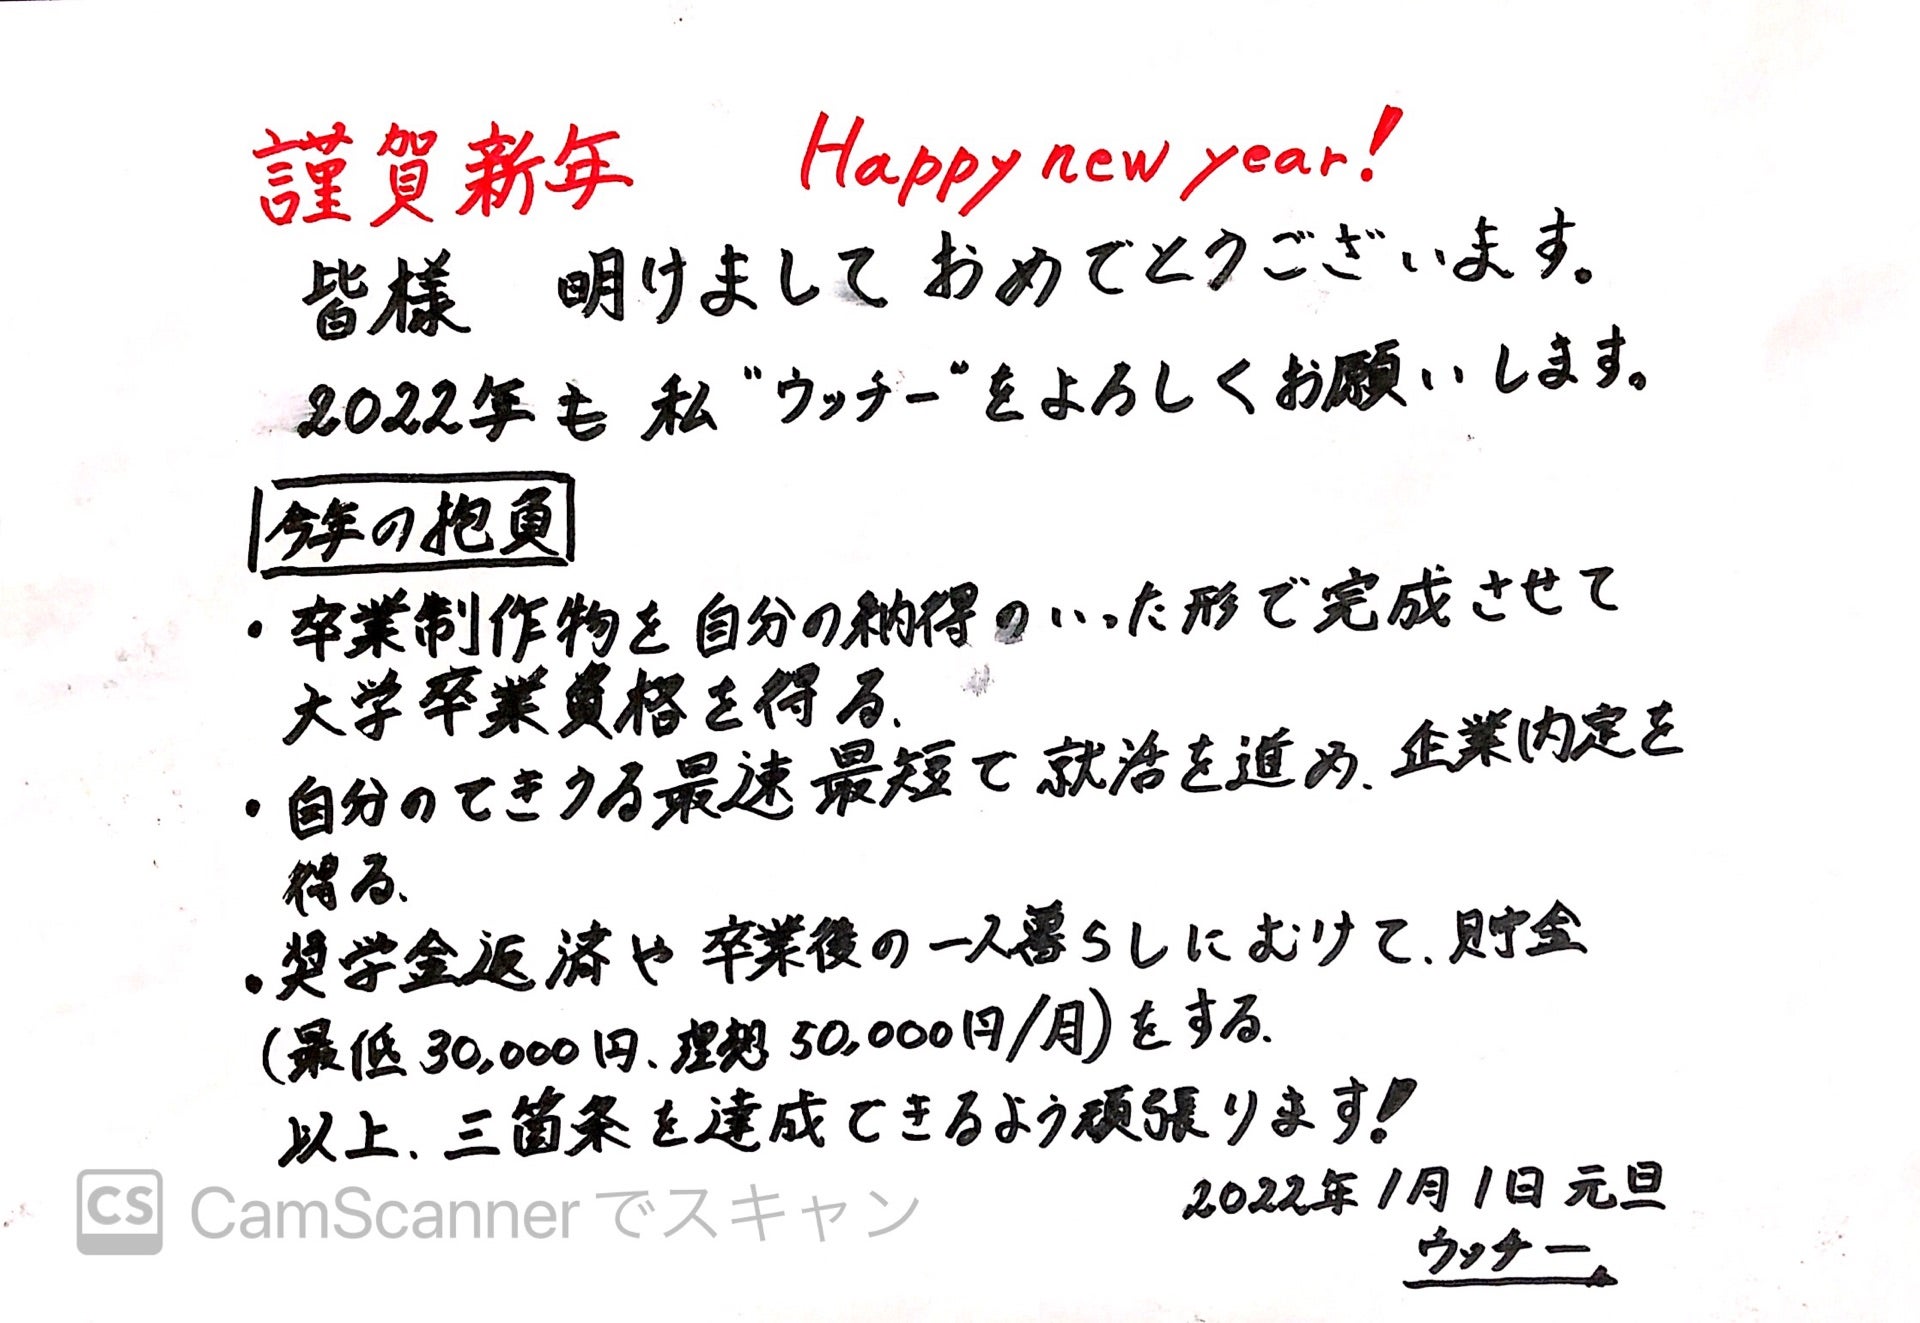 謹賀新年 Happy new year!
皆様 明けまして おめでとうございます。
2022年も 私 "ウッチー" をよろしくお願いします。
今年の抱負
・卒業制作物を自分の納得のいった形で完成させて
大学卒業資格を得る。
・自分のできうる最速最短で就活を進め、企業内定を
得る。
・奨学金返済や卒業後の一人暮らしにむけて、貯金
(最低30,000円、理想50,000円/月)をする。
以上、三箇条を達成できるよう頑張ります!
2022年1月1日 元旦
ウッチー
CS CamScannerでスキャン